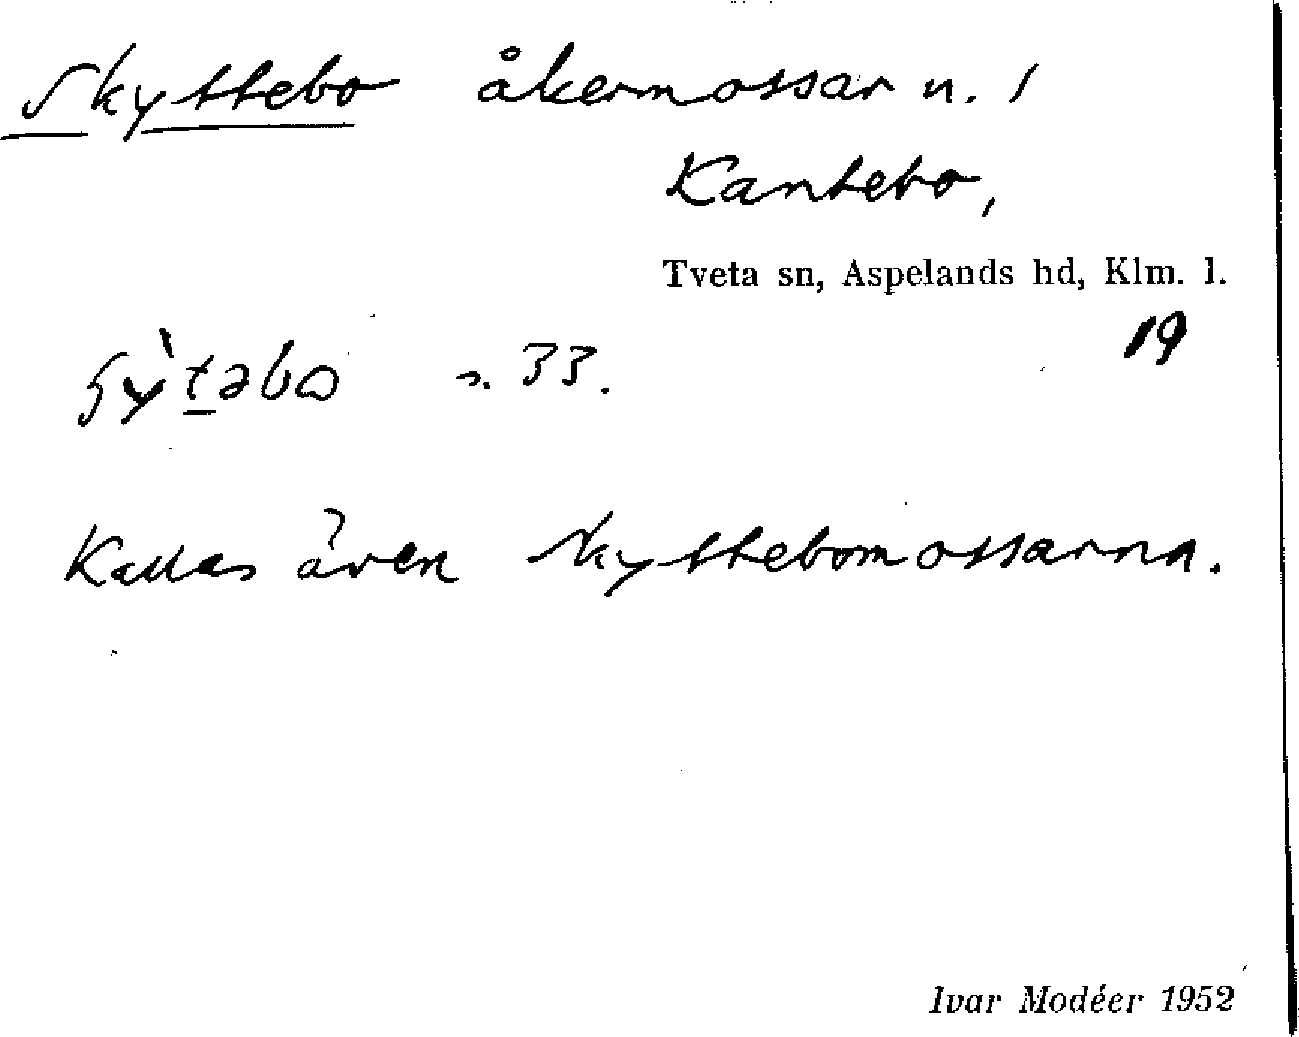 Skyttebo åkermossar n. 1
Kantebo,
Tveta sn, Aspelands hd, Klm. l.
19
ʂỳtəbo s. 33.
Kallas även Skyttebomossarna.
Ivar Modéer 1952